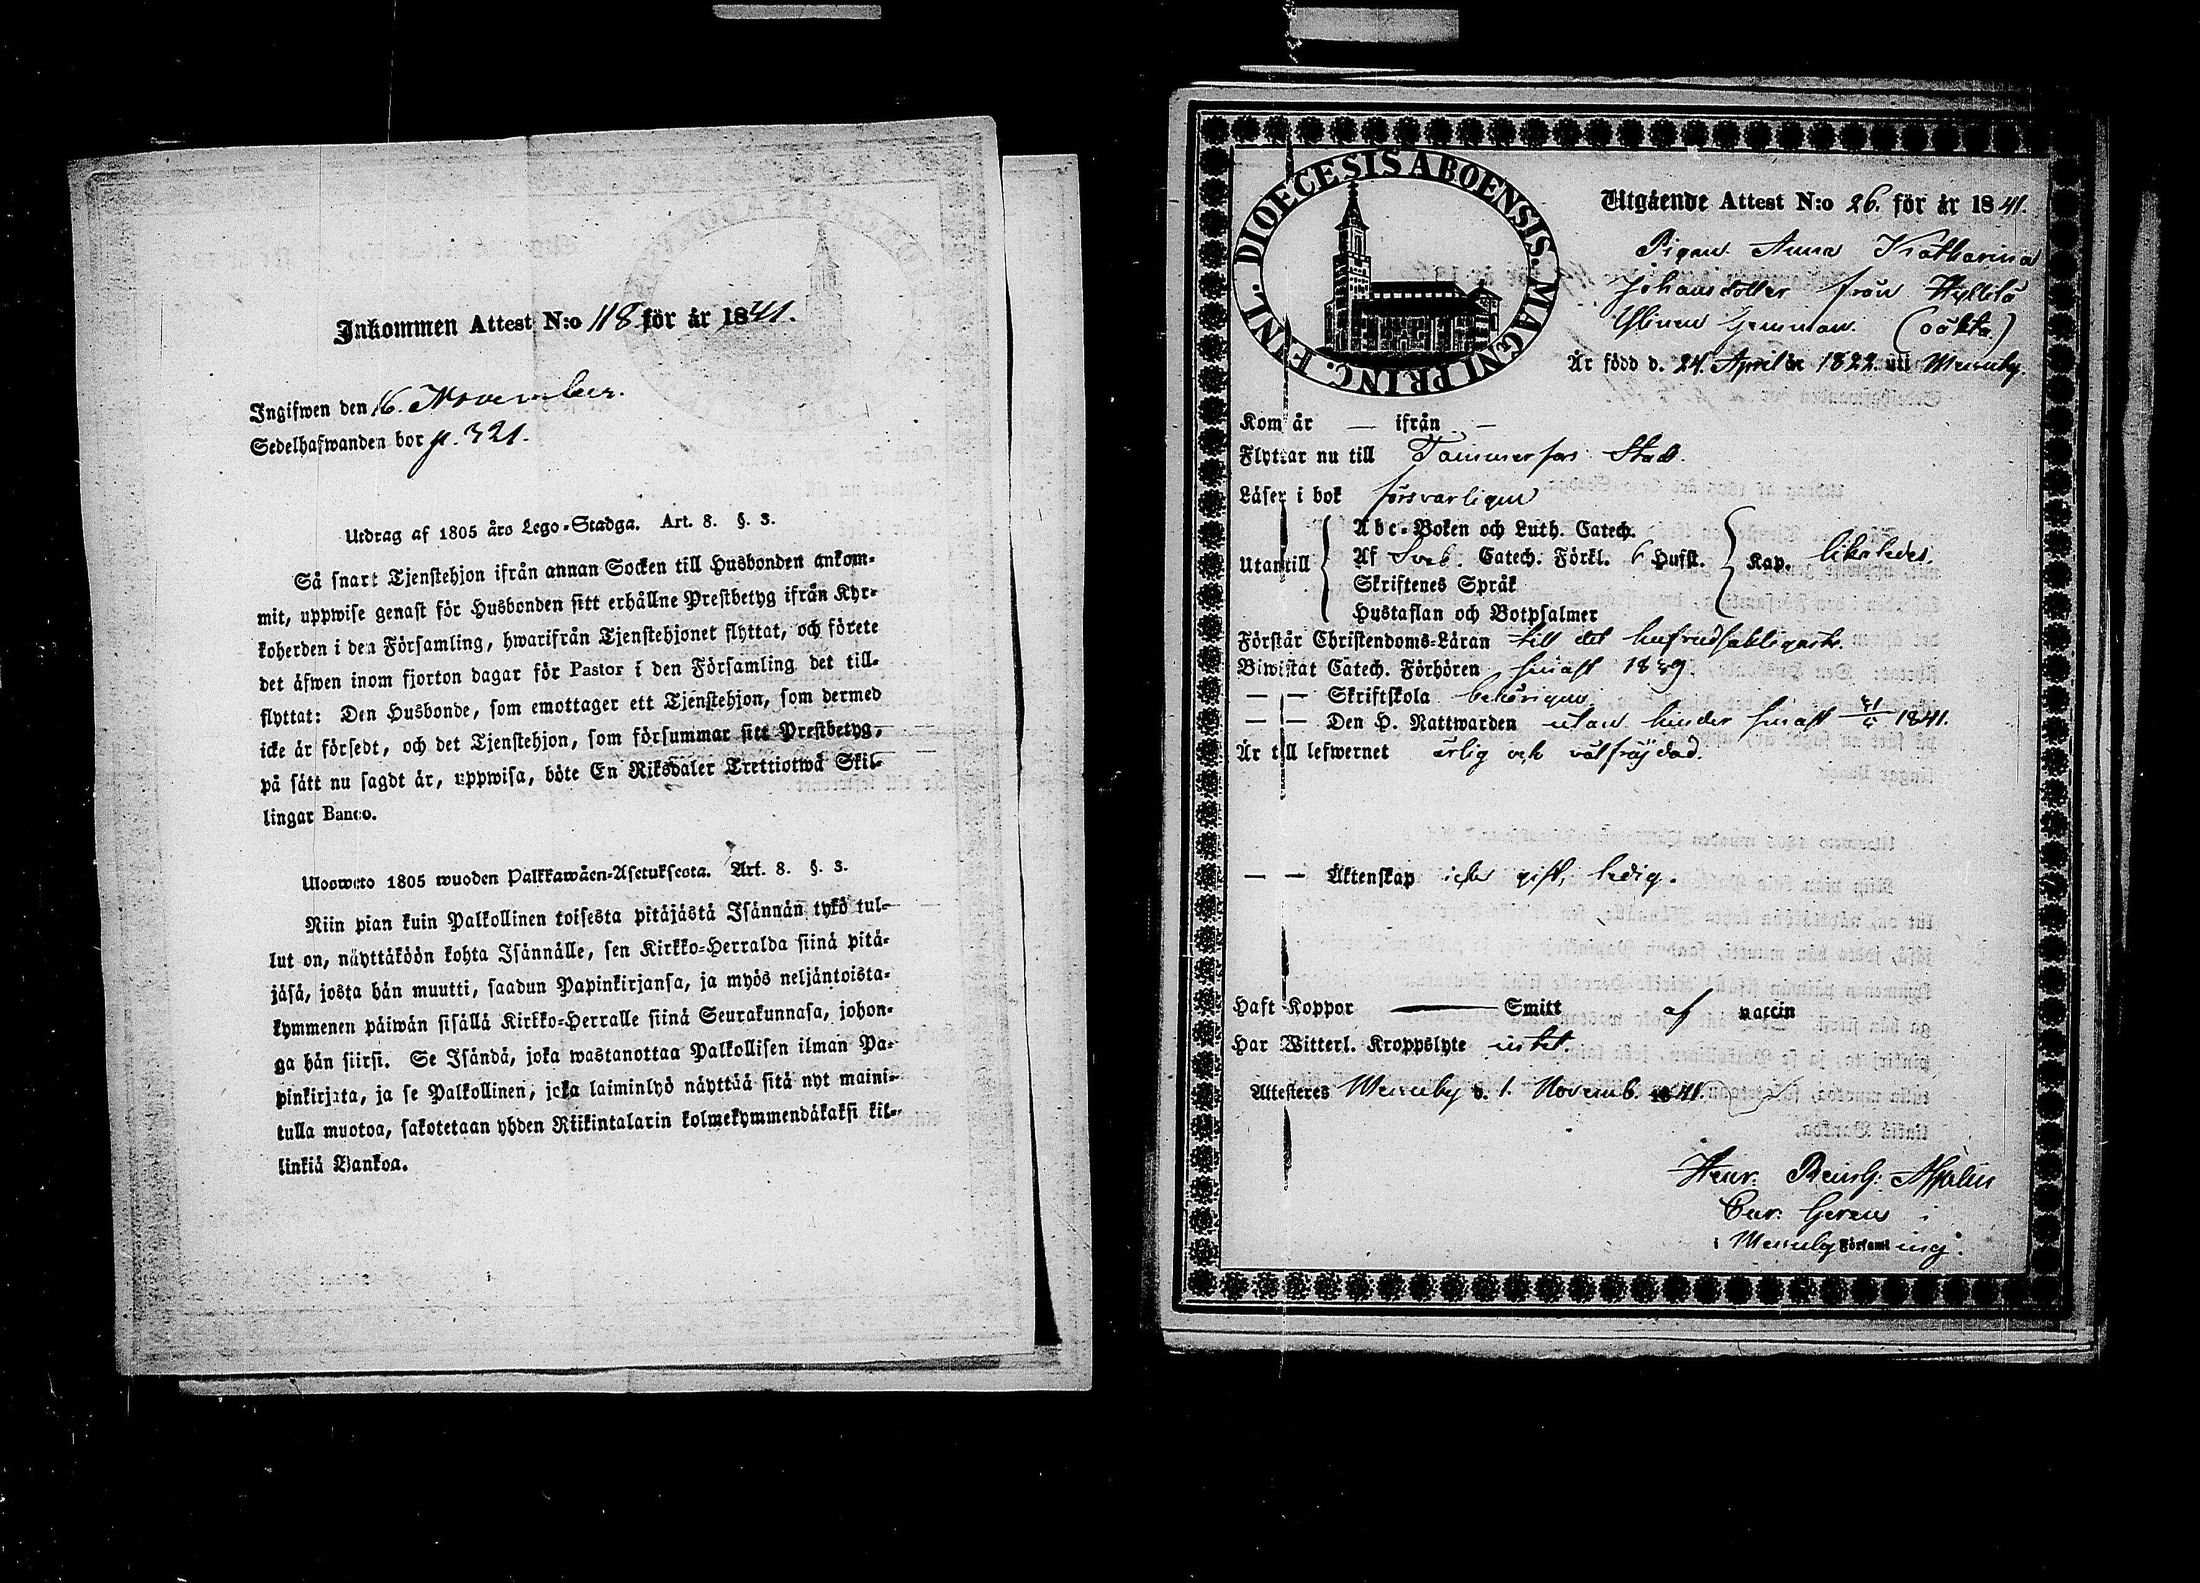 Inkommen Attest N:o 118 för år 1841.
Ingifwen den 16. November.
Sedelhafwanden bor p. 321.
Utdrag af 1805 års Lego-Stadga. Art. 8. §. 3.
Så snart Tjenstehjon ifrån annan Socken till Husbonden ankom-
mit, uppwise genast för Husbonden sitt erhållne Prestbetyg ifrån Kyr-
koherden i den Församling, hwarifrån Tjenstehjonet flyttat, och förete
det äfwen inom fjorton dagar för Pastor i den Församling det till-
flyttat: Den Husbonde, som emottager ett Tjenstehjon, som dermed
icke är försedt, och det Tjenstehjon, som försummar sitt Prestbetyg,
på sätt nu sagdt är, uppwisa, böte En Riksdaler Trettiotwå Skil-
lingar Banco.
Ulosweto 1805 wuoden Palkkawäen-Asetuksesta. Art. 8. §. 3.
Niin pian kuin Palkollinen toisesta pitäjästä Isännän tykö tul-
lut on, näyttäköön kohta Isännälle, sen Kirkko-Herralda siinä pitä-
jäsä, josta hän muutti, saadun Papinkirjansa, ja myös neljäntoista-
kymmenen päiwän sisällä Kirkko-Herralle siinä Seurakunnasa, johon-
ga hän siirsi. Se Isändä, joka wastanottaa Palkollisen ilman Pa-
pinkirjata, ja se Palkollinen, joka laiminlyö näyttää sitä nyt maini-
tulla muotoa, sakotetaan yhden Riikintalarin kolmekymmendäkaksi kil-
linkiä Bankoa.
DIOECESIS ABOENSIS. MAGNI PRINC. FINL.
Utgående Attest N:o 26. för år 1841.
Pigan Anna Katharina
Johansdotter från Hyllilä
Ylinen hemman. (oäkta)
Är född d. 24. April år 1822. uti Messuby.
Kom år — ifrån —
Flyttar nu till Tammerfors Stad.
Läser i bok försvarligen
Utantill
Abc-Boken och Luth. Catech.
Af Sveb. Catech. Förkl. 6 Hufst. Kap. likaledes.
Skriftenes Språk
Hustaflan och Botpsalmer
Förstår Christendoms-Läran till det hufvudsakligaste.
Biwistat Catech. Förhören senast 1839.
— — Skriftskola behörigen
— — Den H. Nattwarden utan hinder senast 1841.
Är till lefwernet ärlig och välfräjdad.
— — Äktenskap icke gift, ledig.
Haft Koppor — Smitt af vaccin
Har Witterl. Kroppslyte intet.
Attesteres Messuby d. 1. Novemb. 1841.
Henr. Reinh.
i Messuby Församling.